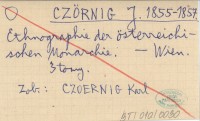 CZÖRNIG J. 1855-1857
Ethnographie der österreichi-
schen Monarchie. — Wien.
3 tomy.
Zob.: CZOERNIG Karl